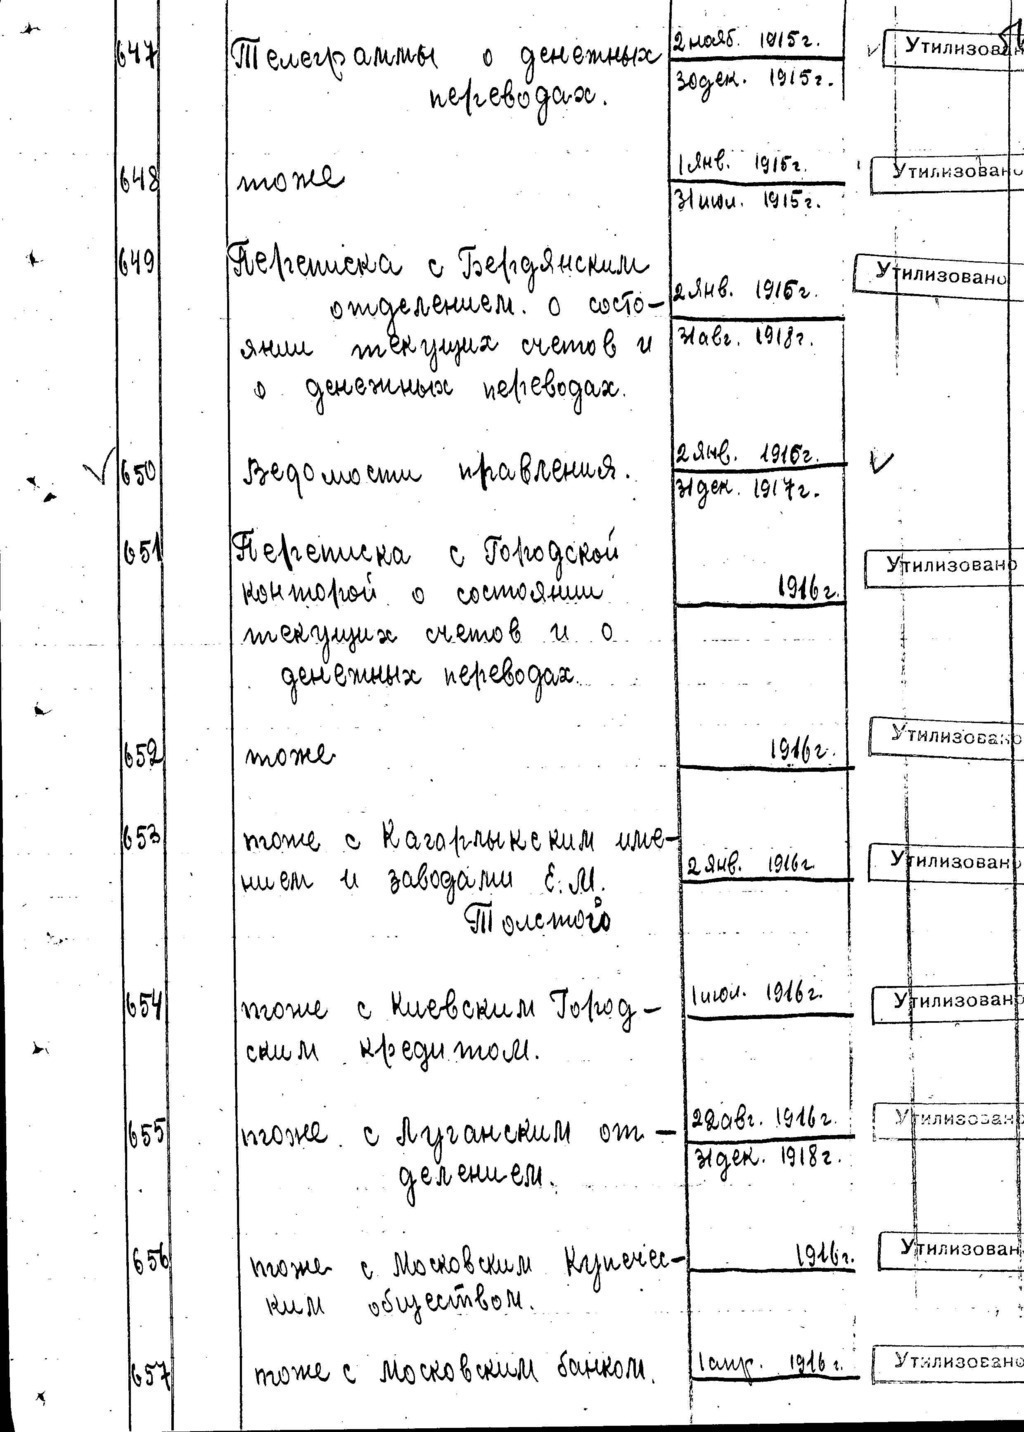 647 Телеграммы о денежных 2 нояб. 1915г. Утилизова
переводах. 30 дек. 1915г.
648 тоже 1 янв. 1915г. Утилизовано
31 июл. 1915г.
649 Переписка с Бердянским Утилизовано
отделением. о состо- 2 янв. 1915г.
янии текущих счетов и 31 авг. 1918г.
о денежных переводах.
650 Ведомости правления. 2 янв. 1915г.
31 дек. 1917г.
651 Переписка с Городской Утилизовано
конторой о состоянии 1916г.
текущих счетов и о
денежных переводах.
652 тоже 1916г. Утилизовано
653 тоже с Кагарлыкским име- Утилизовано
нием и заводами Е.М. 2 янв. 1916г
Толстого
654 тоже с Киевским Город- 1 июл. 1916г. Утилизован
ским кредитом.
655 тоже с Луганским от- 22 авг. 1916г. Утилизован
делением. 31 дек. 1918г.
656 тоже с Московским Купечес- 1916г. Утилизован
ким обществом.
657 тоже с Московским банком. 1 апр. 1916г. Утилизовано